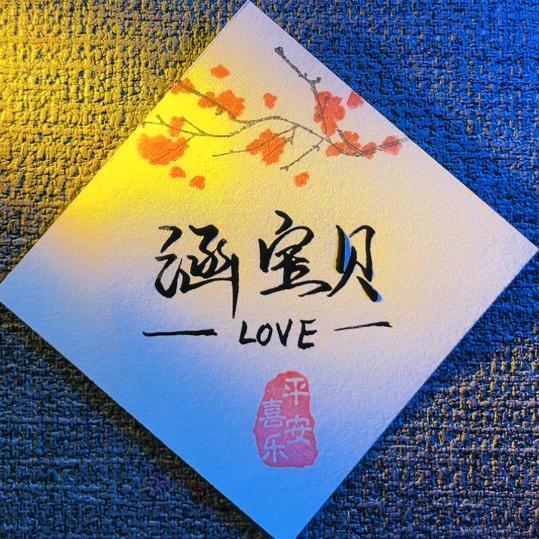 涵宝贝
— LOVE —
平安
喜乐